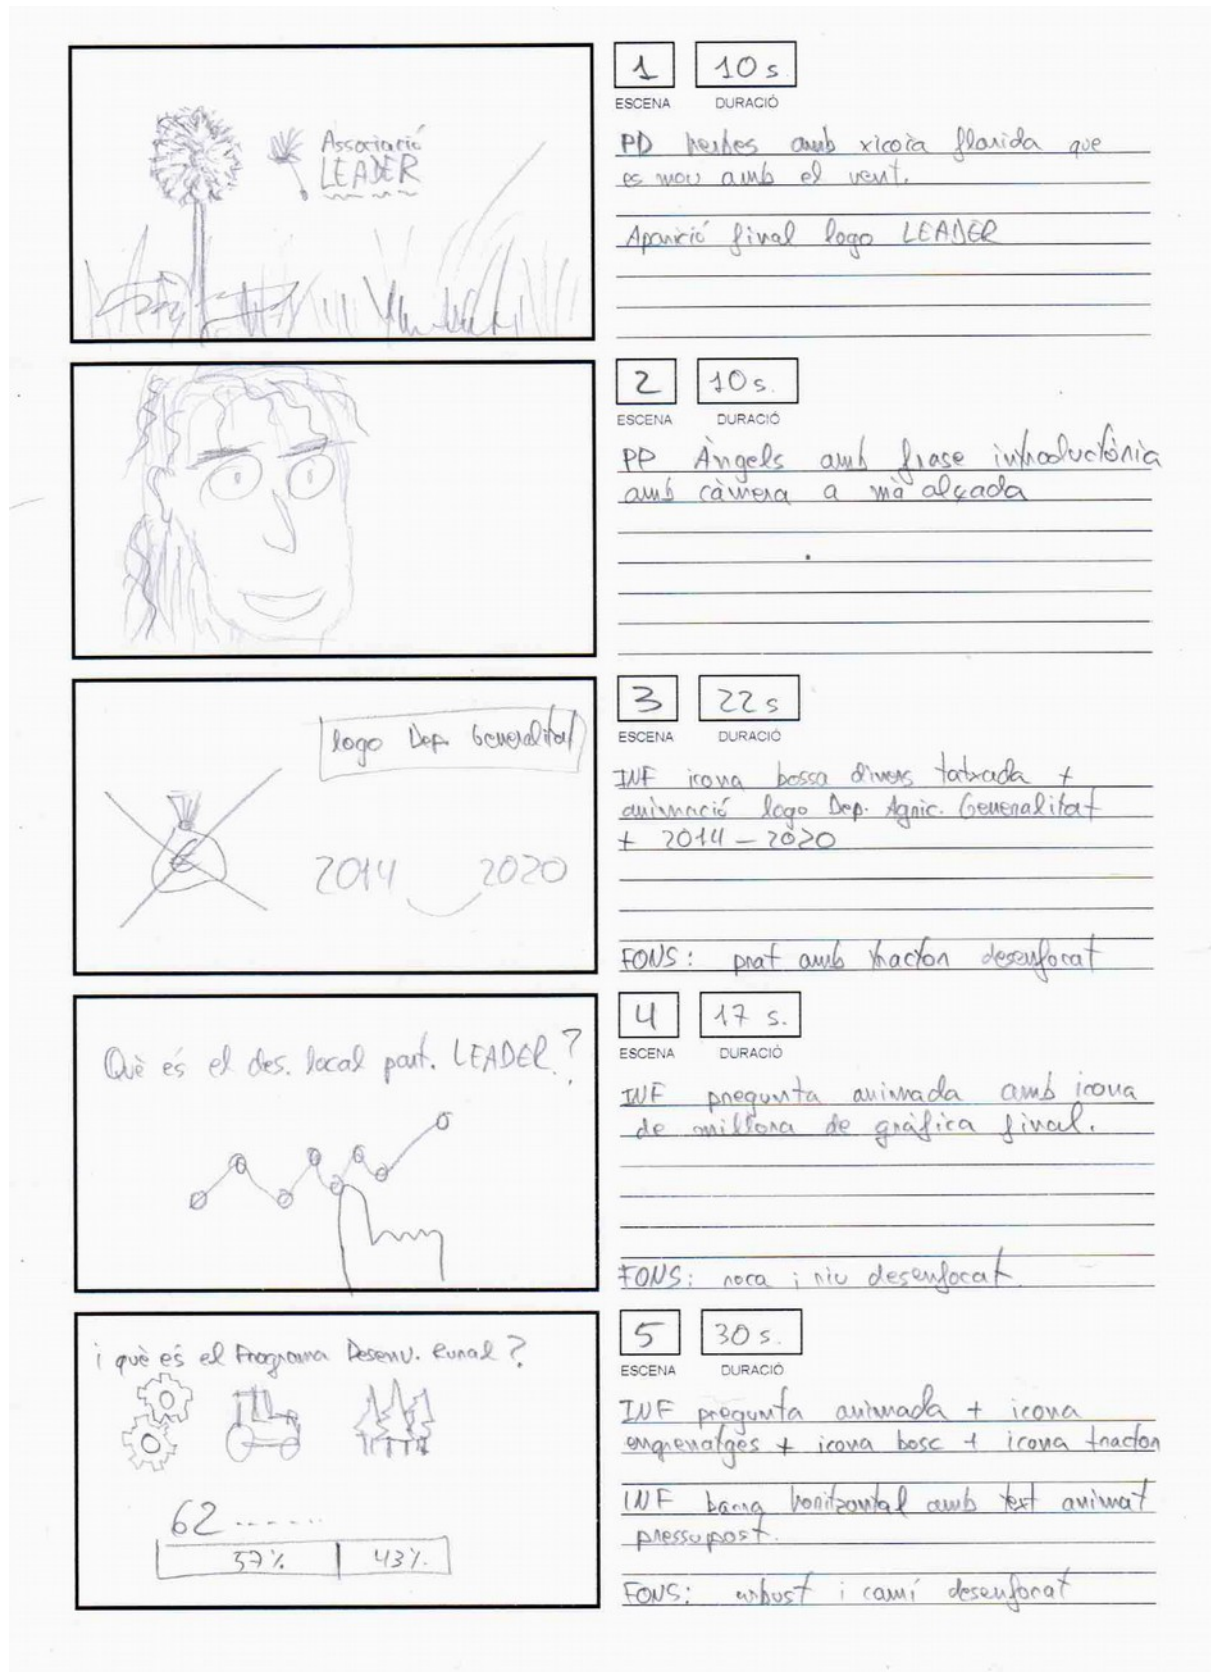 Associació
LEADER
1
10 s
ESCENA
DURACIÓ
PD herbes amb xicoia florida que
es mou amb el vent.
Aparició final logo LEADER
2
10 s.
ESCENA
DURACIÓ
PP Àngels amb frase introductòria
amb càmera a mà alçada
logo Dep. Generalitat
€
2014 2020
3
22 s
ESCENA
DURACIÓ
INF icona bossa diners tatxada +
animació logo Dep. Agric. Generalitat
+ 2014 - 2020
FONS: prat amb tractor desenfocat
Què és el des. local part. LEADER?
4
17 s.
ESCENA
DURACIÓ
INF pregunta animada amb icona
de millora de gràfica final.
FONS: roca i riu desenfocat
i què és el Programa Desenv. Rural?
62 ......
57% 43%
5
30 s.
ESCENA
DURACIÓ
INF pregunta animada + icona
engrenatges + icona bosc + icona tractor
INF barra horitzontal amb text animat
pressupost.
FONS: arbust i camí desenfocat